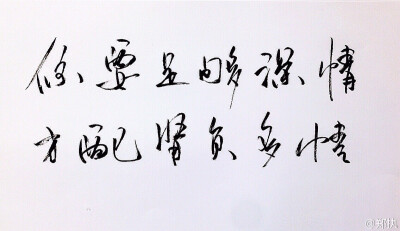 你要足够深情
才配背负多情